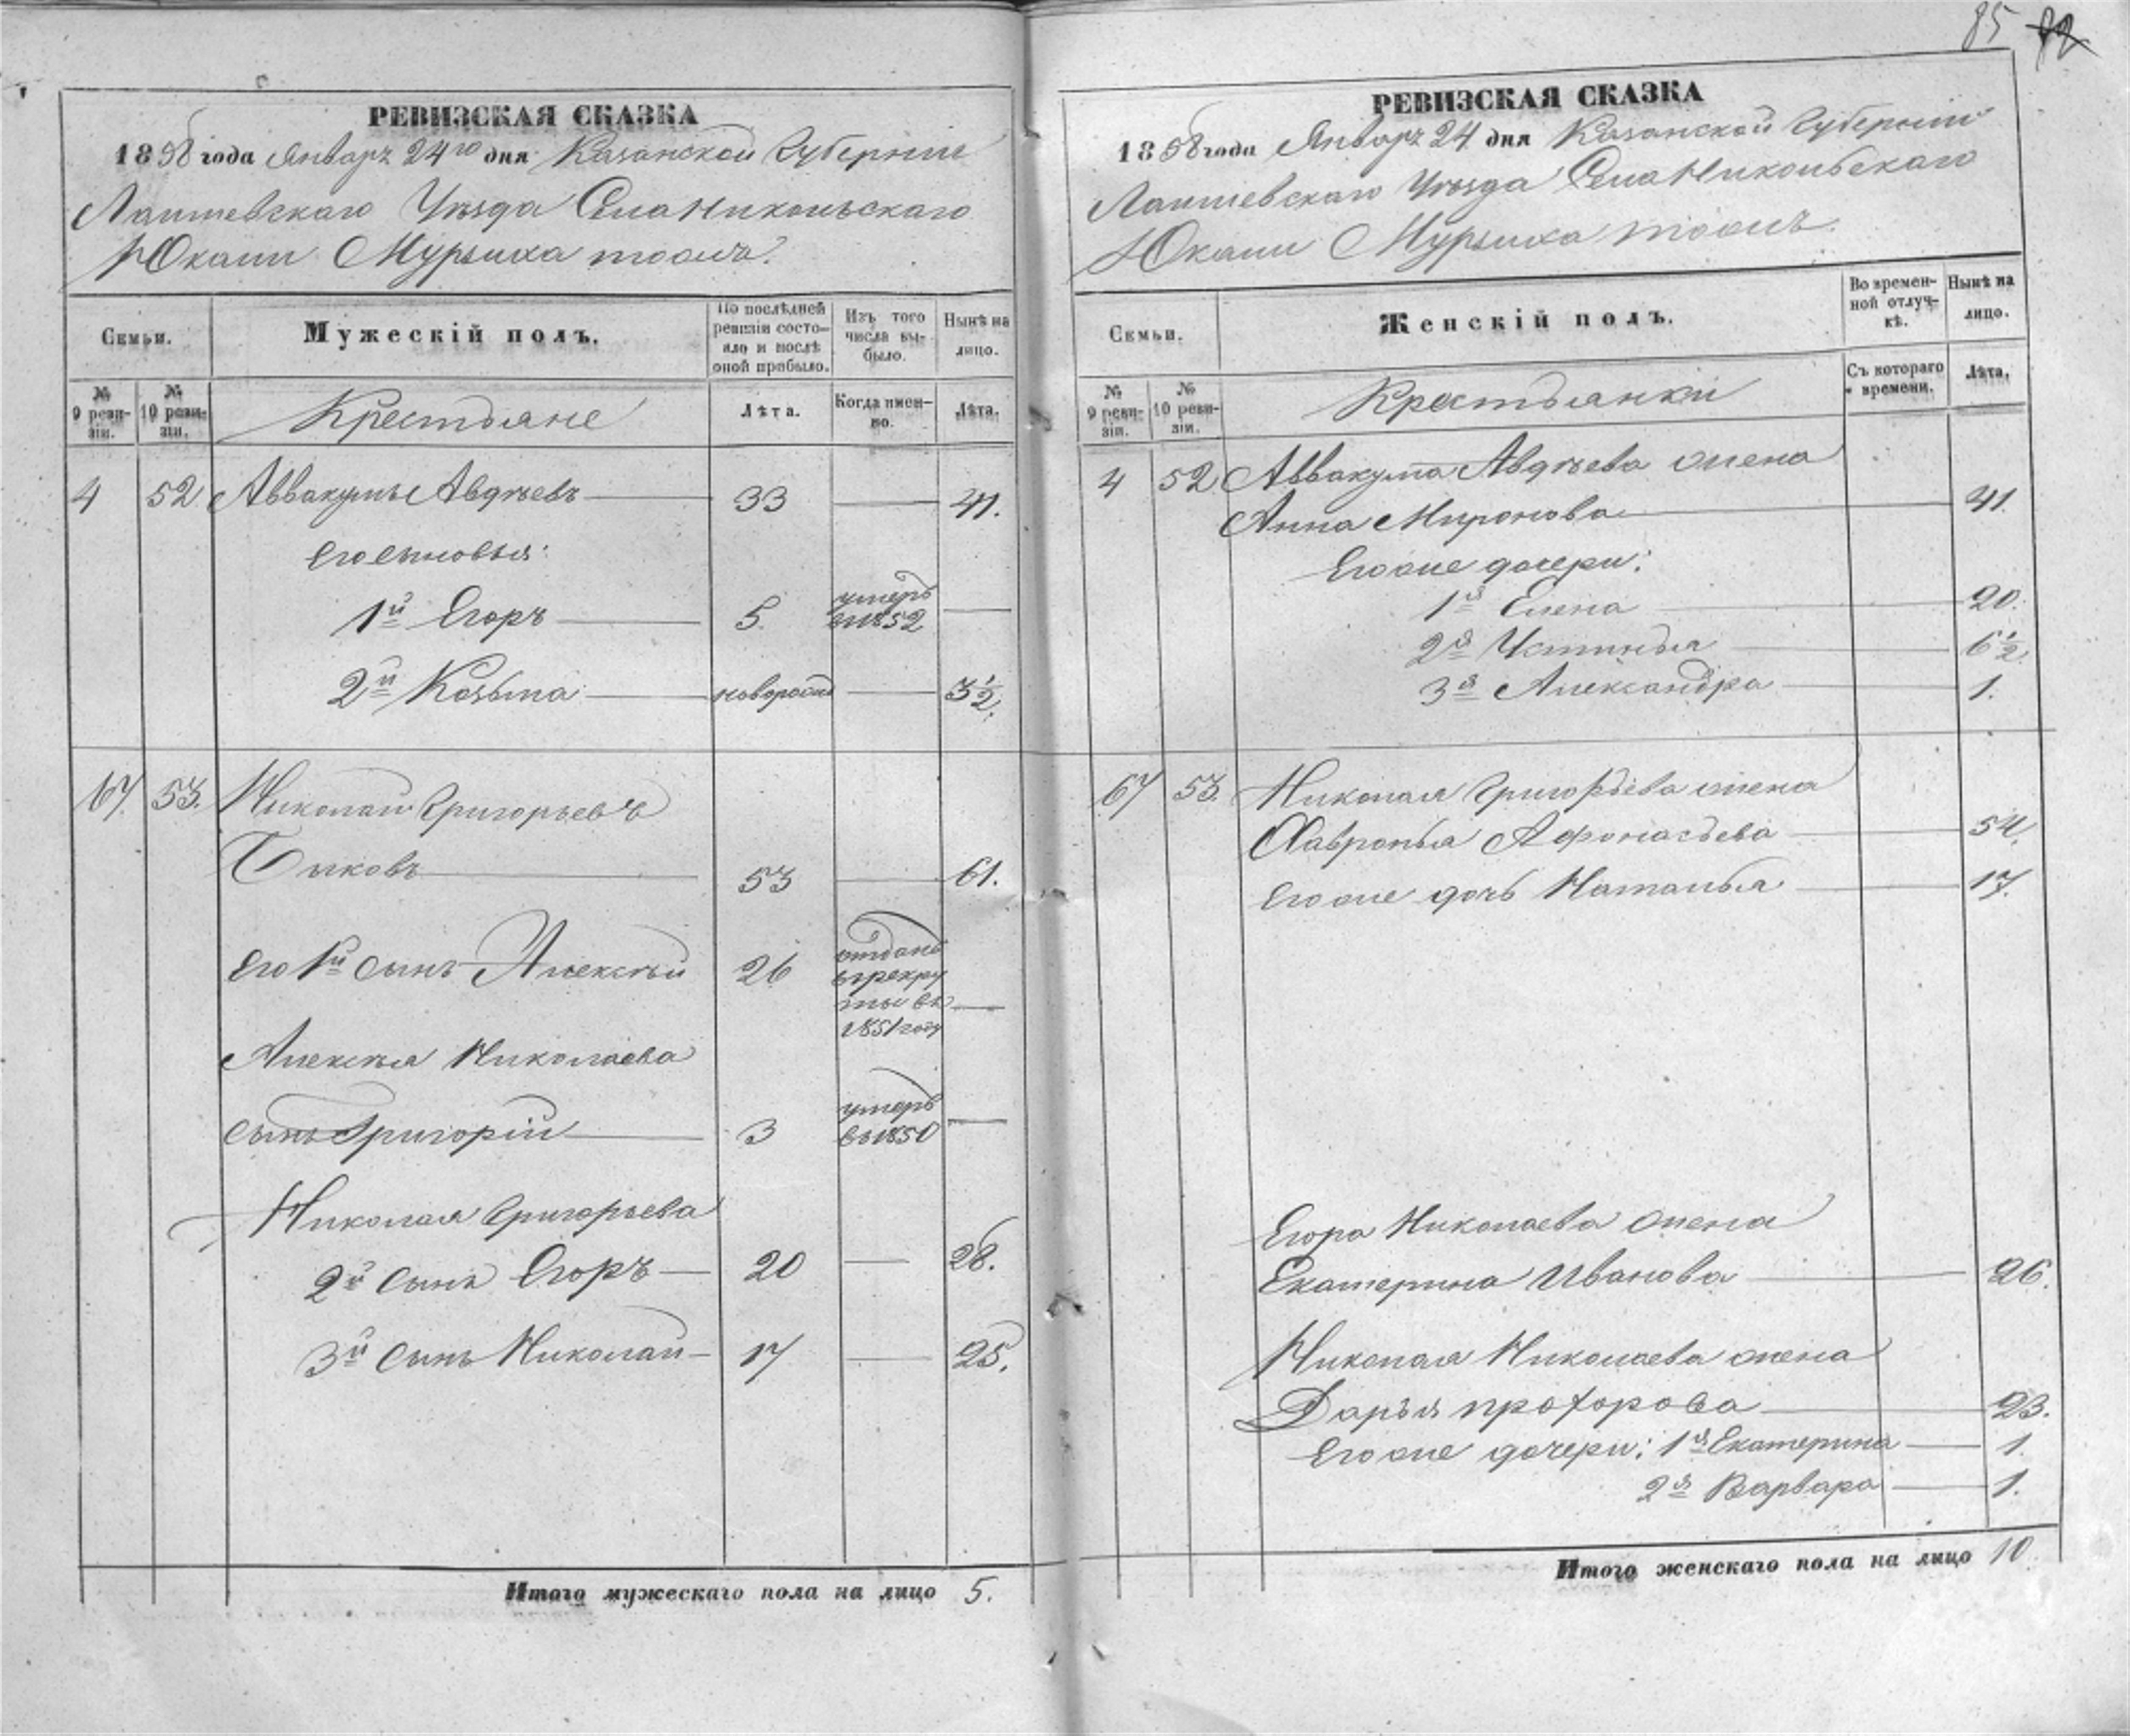 85 72
РЕВИЗСКАЯ СКАЗКА
1858 года Январz 24го дня Казанской Губерніи
Лаишевскаго Уѣзда Села Никольскаго
Юкачи Мурзиха тожъ.
Семьи.
Мужескій полъ.
По послѣдней ревизіи состояло и послѣ оной прибыло.
Изъ того числа выбыло.
Нынѣ на лицо.
№ 9 ревизіи.
№ 10 ревизіи.
Крестьяне
Лѣта.
Когда именно.
Лѣта.
4 52 Аввакумъ Авдѣевъ 33 41.
Его сыновья:
1й Егоръ 5. умеръ 1852
2й Козьма новорожд 3½.
67. 53. Николай Григорьевъ
Быковъ 53 61.
Его 1й сынъ Алексѣй 26 отданъ въ рекруты въ 1851 году
Алексѣя Николаева
сынъ Григорій 3 умеръ въ 1850
Николая Григорьева
2й сынъ Егоръ 20 28.
3й сынъ Николай 17 25.
Итого мужескаго пола на лицо 5.
РЕВИЗСКАЯ СКАЗКА
1858 года Январz 24 дня Казанской Губерніи
Лаишевскаго Уѣзда Села Никольскаго
Юкачи Мурзиха тожъ.
Семьи.
Женскій полъ.
Во временной отлучкѣ.
Нынѣ на лицо.
№ 9 ревизіи.
№ 10 ревизіи.
Крестьянки
Съ котораго времени.
Лѣта.
4 52 Аввакума Авдѣева жена
Анна Миронова 41.
Его же дочери:
1я Елена 20.
2я Устинья 6½.
3я Александра 1.
67 53. Николая Григорьева жена
Хавронья Афонасьева 54.
Его же дочь Наталья 17.
Егора Николаева жена
Екатерина Иванова 26.
Николая Николаева жена
Дарья Прохорова 23.
Его же дочери: 1я Екатерина 1.
2я Варвара 1.
Итого женскаго пола на лицо 10.